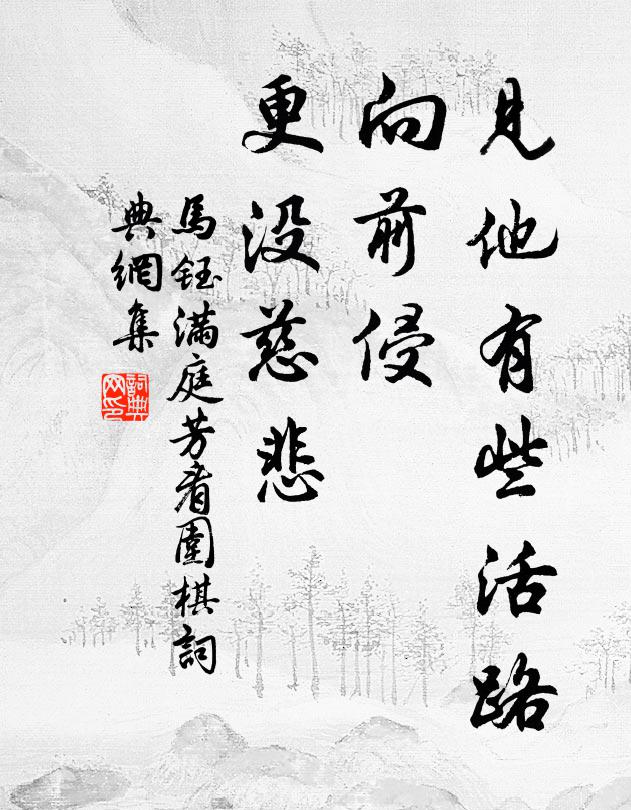 見他有些活路
向前侵
更没慈悲
馬鈺滿庭芳看圍棋詞
典網集
詞典
网印